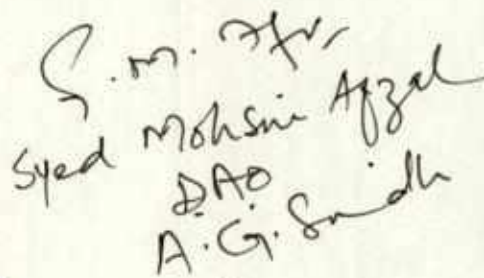 S.M. Afz
Syed Mohsin Afzal
D.A.O
A.G. Sindh